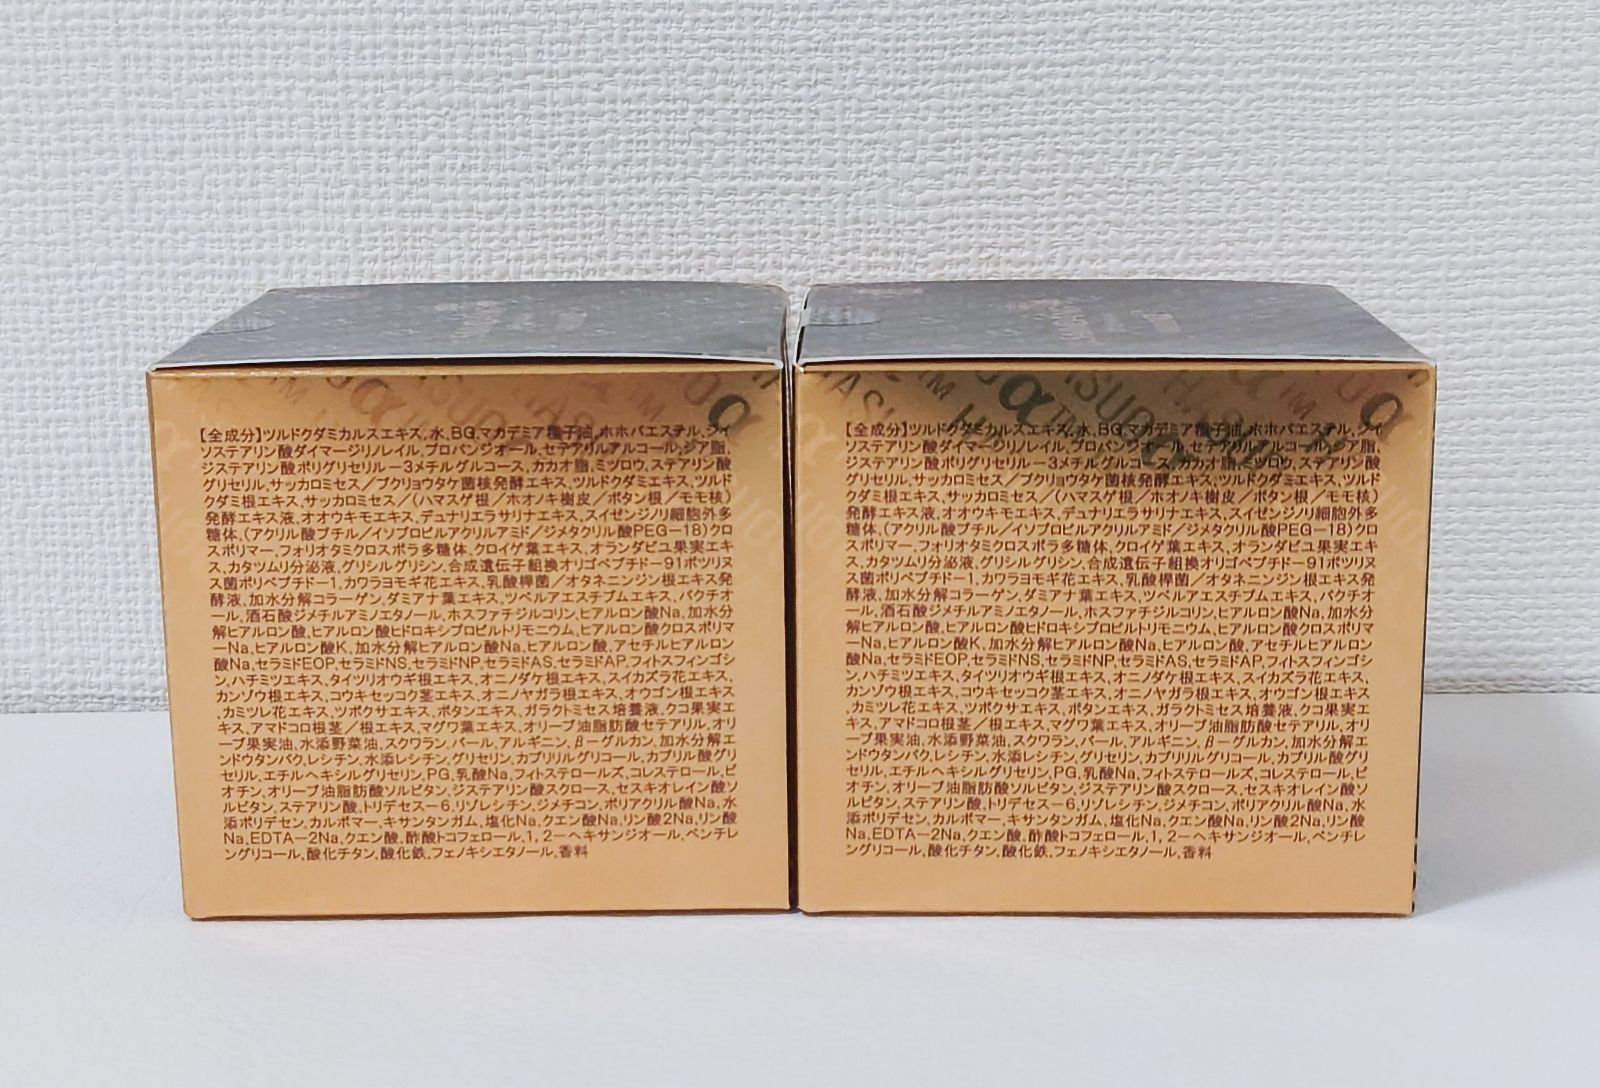 【全成分】ツルドクダミカルスエキス、水、BG、マカデミア種子油、ホホバエステル、ダイ
ソステアリン酸ダイマージリノレイル、プロパンジオール、セテアリルアルコール、シア脂、
ジステアリン酸ポリグリセリル－3メチルグルコース、カカオ脂、ミツロウ、ステアリン酸
グリセリル、サッカロミセス／ブクリョウタケ菌核発酵エキス、ツルドクダミエキス、ツルド
クダミ根エキス、サッカロミセス／（ハマスゲ根／ホオノキ樹皮／ボタン根／モモ核）
発酵エキス液、オオウキモエキス、デュナリエラサリナエキス、スイゼンジノリ細胞外多
糖体、（アクリル酸ブチル／イソプロピルアクリルアミド／ジメタクリル酸PEG－18）クロ
スポリマー、フォリオタミクロスポラ多糖体、クロイゲ葉エキス、オランダビユ果実エキ
ス、カタツムリ分泌液、グリシルグリシン、合成遺伝子組換オリゴペプチド－91ボツリヌ
ス菌ポリペプチド－1、カワラヨモギ花エキス、乳酸桿菌／オタネニンジン根エキス発
酵液、加水分解コラーゲン、ダミアナ葉エキス、ツベルアエスチブムエキス、バクチオ
ール、酒石酸ジメチルアミノエタノール、ホスファチジルコリン、ヒアルロン酸Na、加水分
解ヒアルロン酸、ヒアルロン酸ヒドロキシプロピルトリモニウム、ヒアルロン酸クロスポリマ
ーNa、ヒアルロン酸K、加水分解ヒアルロン酸Na、ヒアルロン酸、アセチルヒアルロン
酸Na、セラミドEOP、セラミドNS、セラミドNP、セラミドAS、セラミドAP、フィトスフィンゴシ
ン、ハチミツエキス、タイツリオウギ根エキス、オニノダケ根エキス、スイカズラ花エキス、
カンゾウ根エキス、コウキセッコク茎エキス、オニノヤガラ根エキス、オウゴン根エキス
、カミツレ花エキス、ツボクサエキス、ボタンエキス、ガラクトミセス培養液、クコ果実エ
キス、アマドコロ根茎／根エキス、マグワ葉エキス、オリーブ油脂肪酸セテアリル、オリ
ーブ果実油、水添野菜油、スクワラン、パール、アルギニン、β－グルカン、加水分解エ
ンドウタンパク、レシチン、水添レシチン、グリセリン、カプリリルグリコール、カプリル酸グリ
セリル、エチルヘキシルグリセリン、PG、乳酸Na、フィトステロールズ、コレステロール、ビ
オチン、オリーブ油脂肪酸ソルビタン、ジステアリン酸スクロース、セスキオレイン酸ソ
ルビタン、ステアリン酸、トリデセス－6、リゾレシチン、ジメチコン、ポリアクリル酸Na、水
添ポリデセン、カルボマー、キサンタンガム、塩化Na、クエン酸Na、リン酸2Na、リン酸
Na、EDTA－2Na、クエン酸、酢酸トコフェロール、1,2－ヘキサンジオール、ペンチレ
ングリコール、酸化チタン、酸化鉄、フェノキシエタノール、香料
【全成分】ツルドクダミカルスエキス、水、BG、マカデミア種子油、ホホバエステル、ダイ
ソステアリン酸ダイマージリノレイル、プロパンジオール、セテアリルアルコール、シア脂、
ジステアリン酸ポリグリセリル－3メチルグルコース、カカオ脂、ミツロウ、ステアリン酸
グリセリル、サッカロミセス／ブクリョウタケ菌核発酵エキス、ツルドクダミエキス、ツルド
クダミ根エキス、サッカロミセス／（ハマスゲ根／ホオノキ樹皮／ボタン根／モモ核）
発酵エキス液、オオウキモエキス、デュナリエラサリナエキス、スイゼンジノリ細胞外多
糖体、（アクリル酸ブチル／イソプロピルアクリルアミド／ジメタクリル酸PEG－18）クロ
スポリマー、フォリオタミクロスポラ多糖体、クロイゲ葉エキス、オランダビユ果実エキ
ス、カタツムリ分泌液、グリシルグリシン、合成遺伝子組換オリゴペプチド－91ボツリヌ
ス菌ポリペプチド－1、カワラヨモギ花エキス、乳酸桿菌／オタネニンジン根エキス発
酵液、加水分解コラーゲン、ダミアナ葉エキス、ツベルアエスチブムエキス、バクチオ
ール、酒石酸ジメチルアミノエタノール、ホスファチジルコリン、ヒアルロン酸Na、加水分
解ヒアルロン酸、ヒアルロン酸ヒドロキシプロピルトリモニウム、ヒアルロン酸クロスポリマ
ーNa、ヒアルロン酸K、加水分解ヒアルロン酸Na、ヒアルロン酸、アセチルヒアルロン
酸Na、セラミドEOP、セラミドNS、セラミドNP、セラミドAS、セラミドAP、フィトスフィンゴシ
ン、ハチミツエキス、タイツリオウギ根エキス、オニノダケ根エキス、スイカズラ花エキス、
カンゾウ根エキス、コウキセッコク茎エキス、オニノヤガラ根エキス、オウゴン根エキス
、カミツレ花エキス、ツボクサエキス、ボタンエキス、ガラクトミセス培養液、クコ果実エ
キス、アマドコロ根茎／根エキス、マグワ葉エキス、オリーブ油脂肪酸セテアリル、オリ
ーブ果実油、水添野菜油、スクワラン、パール、アルギニン、β－グルカン、加水分解エ
ンドウタンパク、レシチン、水添レシチン、グリセリン、カプリリルグリコール、カプリル酸グリ
セリル、エチルヘキシルグリセリン、PG、乳酸Na、フィトステロールズ、コレステロール、ビ
オチン、オリーブ油脂肪酸ソルビタン、ジステアリン酸スクロース、セスキオレイン酸ソ
ルビタン、ステアリン酸、トリデセス－6、リゾレシチン、ジメチコン、ポリアクリル酸Na、水
添ポリデセン、カルボマー、キサンタンガム、塩化Na、クエン酸Na、リン酸2Na、リン酸
Na、EDTA－2Na、クエン酸、酢酸トコフェロール、1,2－ヘキサンジオール、ペンチレ
ングリコール、酸化チタン、酸化鉄、フェノキシエタノール、香料